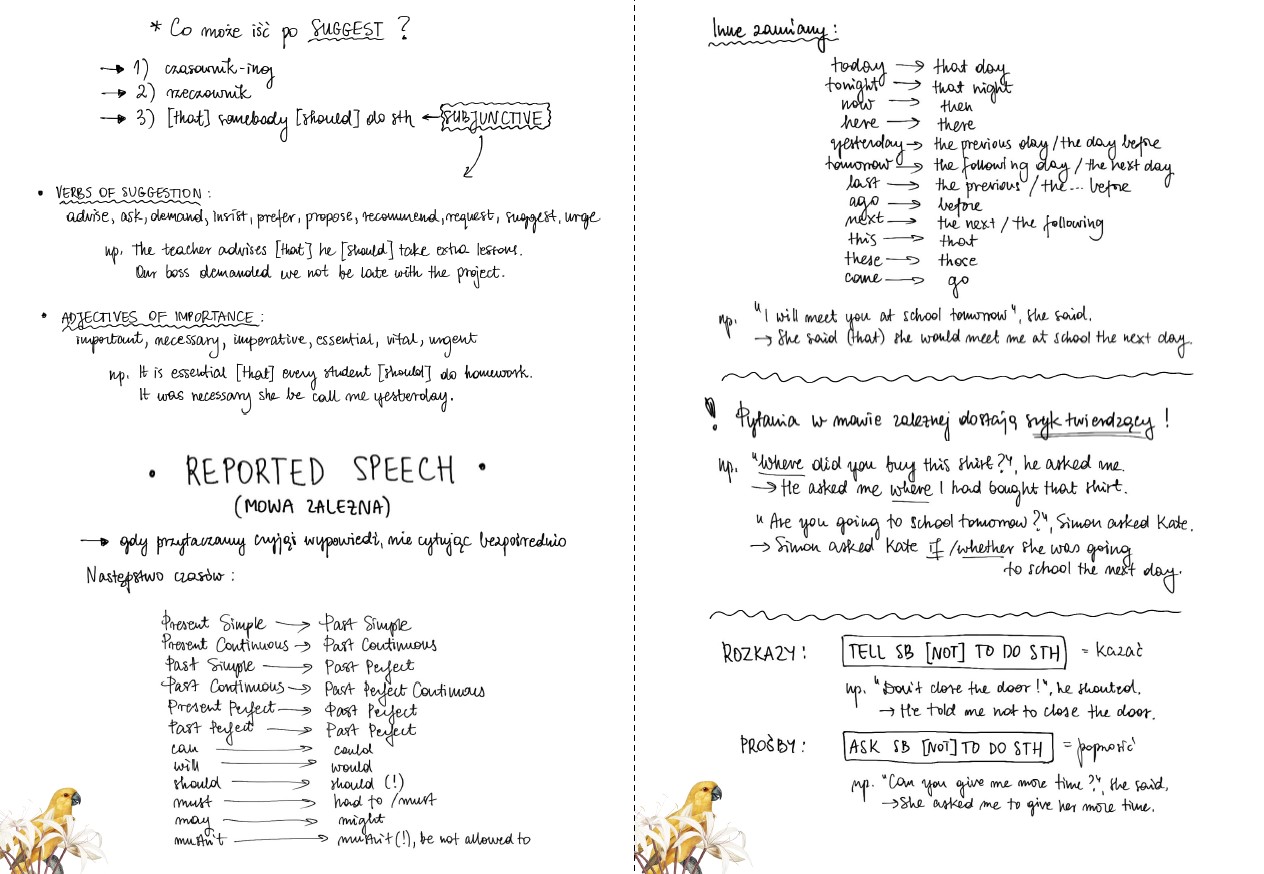 * Co może iść po SUGGEST ?
→ 1) czasownik-ing
→ 2) rzeczownik
→ 3) [that] somebody [should] do sth ← SUBJUNCTIVE
• VERBS OF SUGGESTION :
advise, ask, demand, insist, prefer, propose, recommend, request, suggest, urge
np. The teacher advises [that] he [should] take extra lessons.
Our boss demanded we not be late with the project.
• ADJECTIVES OF IMPORTANCE :
important, necessary, imperative, essential, vital, urgent
np. It is essential [that] every student [should] do homework.
It was necessary she be call me yesterday.
• REPORTED SPEECH •
(MOWA ZALEŻNA)
→ gdy przytaczamy czyjąś wypowiedź, nie cytując bezpośrednio
Następstwo czasów :
Present Simple → Past Simple
Present Continuous → Past Continuous
Past Simple → Past Perfect
Past Continuous → Past Perfect Continuous
Present Perfect → Past Perfect
Past Perfect → Past Perfect
can → could
will → would
should → should (!)
must → had to / must
may → might
mustn't → mustn't (!), be not allowed to
Inne zamiany :
today → that day
tonight → that night
now → then
here → there
yesterday → the previous day / the day before
tomorrow → the following day / the next day
last → the previous / the... before
ago → before
next → the next / the following
this → that
these → those
come → go
np. "I will meet you at school tomorrow", she said.
→ She said (that) she would meet me at school the next day.
! Pytania w mowie zależnej dostają szyk twierdzący !
np. "Where did you buy this shirt?", he asked me.
→ He asked me where I had bought that shirt.
"Are you going to school tomorrow?", Simon asked Kate.
→ Simon asked Kate if / whether she was going
to school the next day.
ROZKAZY : TELL SB [NOT] TO DO STH = kazać
np. "Don't close the door!", he shouted.
→ He told me not to close the door.
PROŚBY : ASK SB [NOT] TO DO STH = poprosić
np. "Can you give me more time?", she said.
→ She asked me to give her more time.